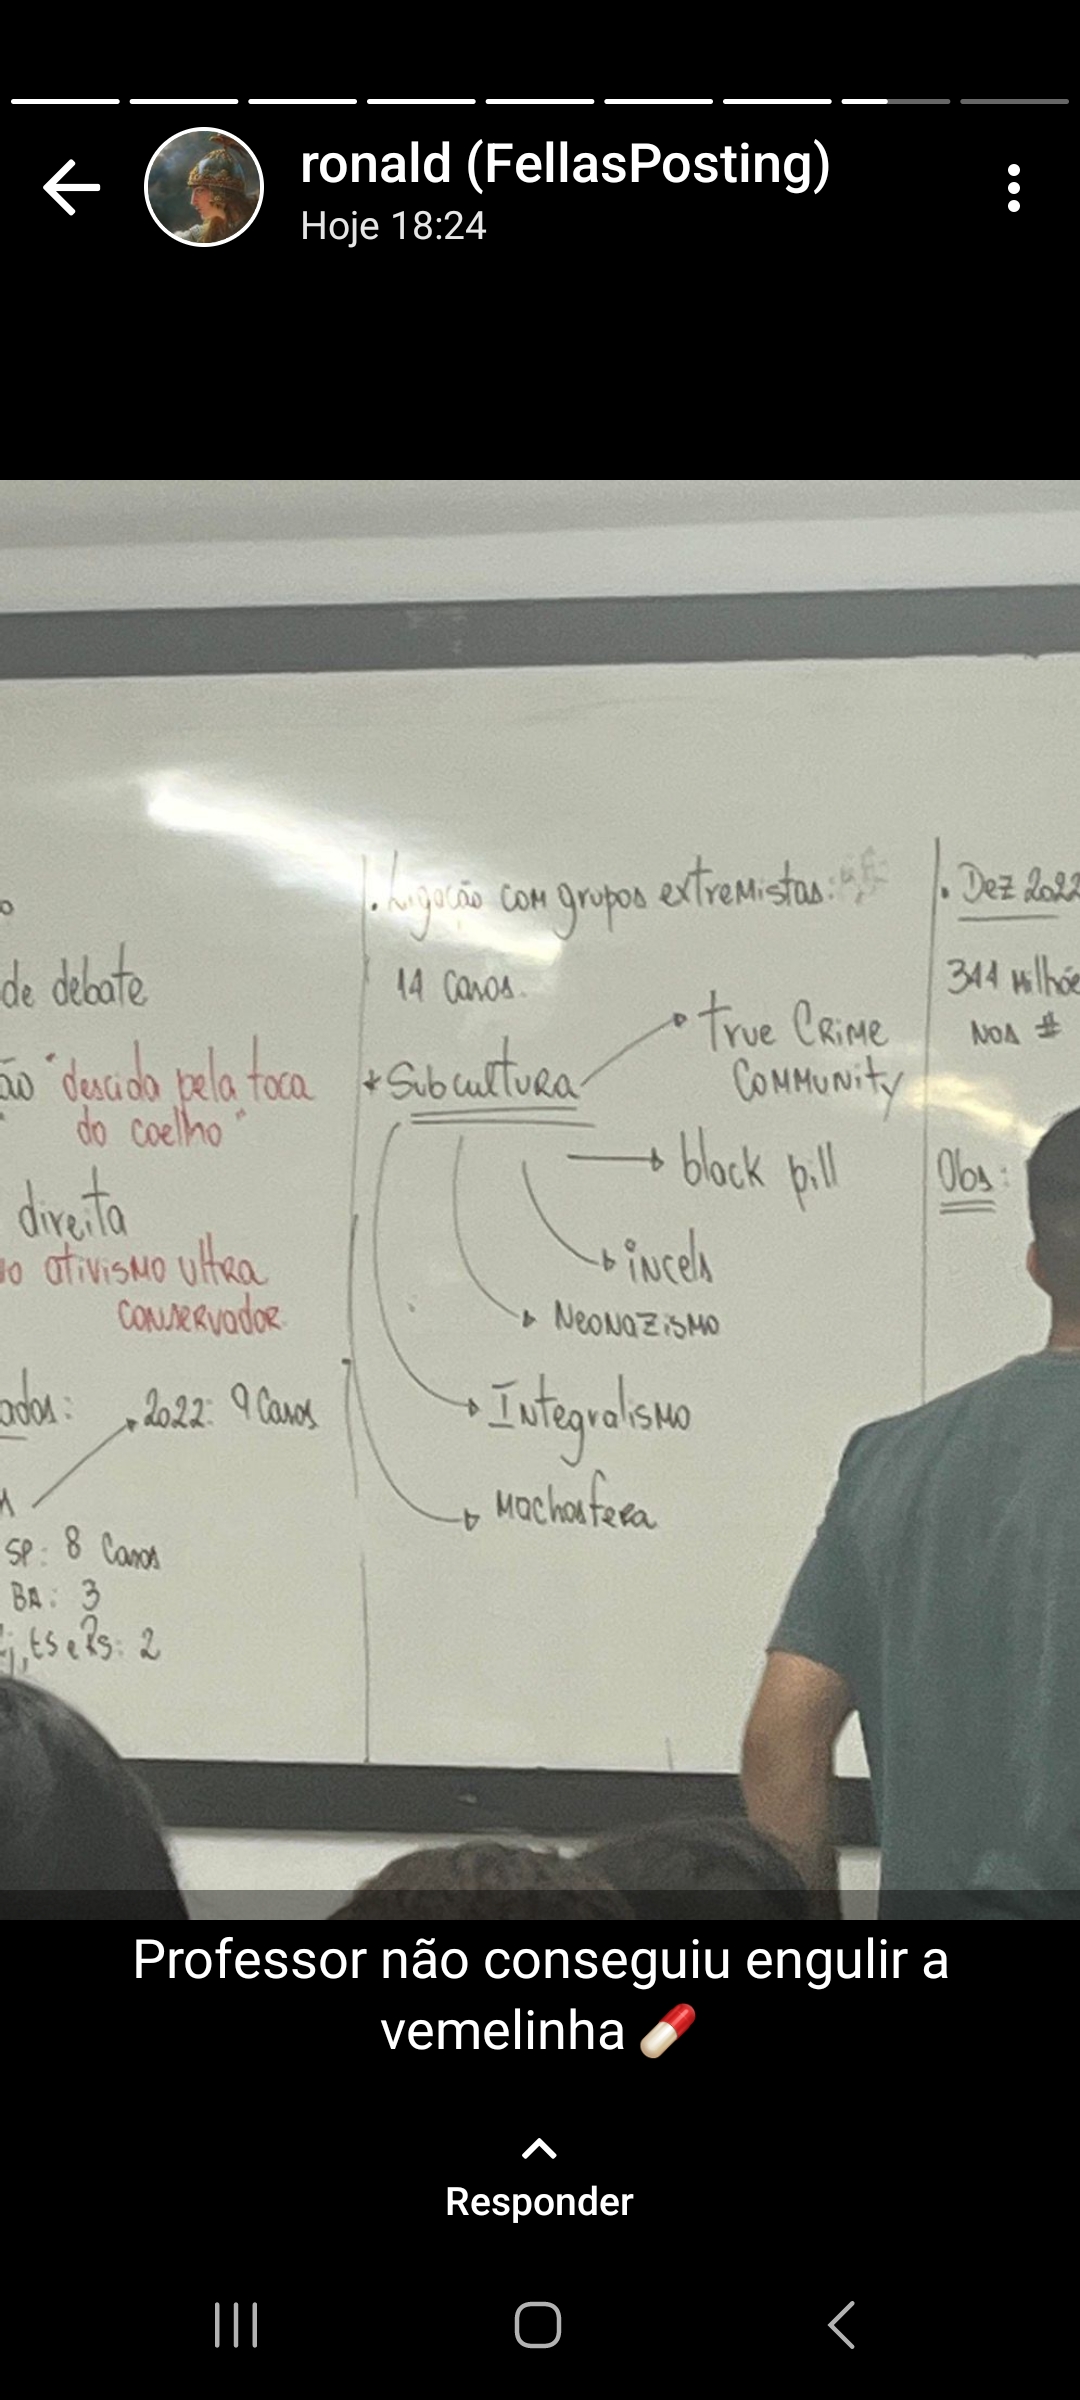 ronald (FellasPosting)
Hoje 18:24
o
de debate
ão "descida pela toca
do coelho"
direita
o ativismo ultra
conservador
ados:
2022: 9 Casos
SP: 8 Casos
BA: 3
j, ES e RS: 2
. Ligação com grupos extremistas:
14 casos.
* Subcultura
True Crime
Community
black pill
incels
Neonazismo
Integralismo
Machosfera
. Dez 2022
344 Milhõe
nos #
Obs:
Professor não conseguiu engulir a
vemelinha 💊
Responder